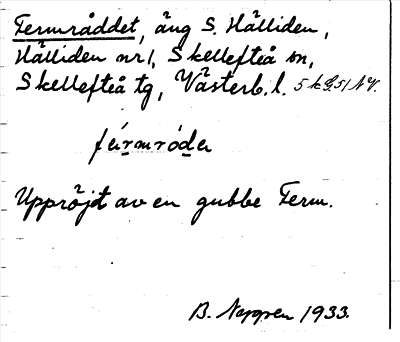 Fermråddet, äng S. Hälliden,
Hälliden nr 1, Skellefteå sn,
Skellefteå tg, Västerb. l. 5 k G. 51 NV.
férmródə
Uppröjt av en gubbe Ferm.
B. 1933.